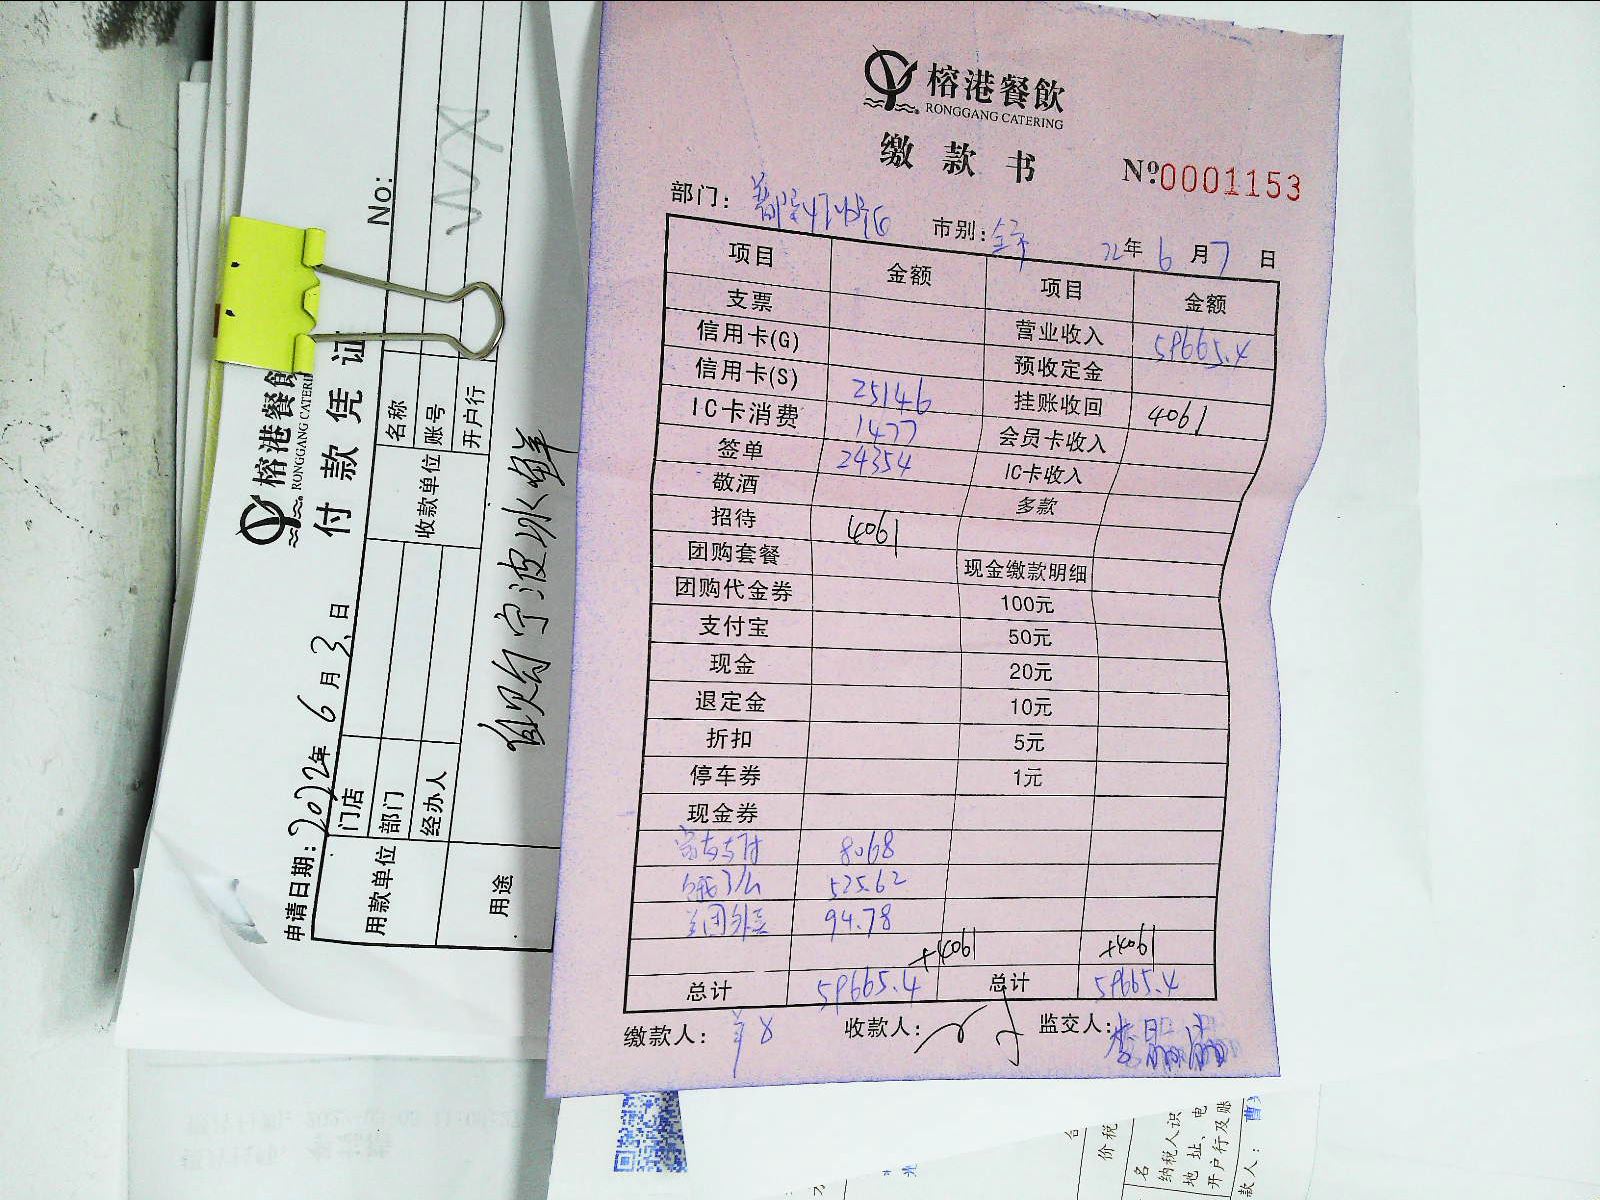 榕港餐飲
RONGGANG CATERING
缴款书
№0001153
部门：
市别：全市 22年6月7日
项目 金额 项目 金额
支票 营业收入 59665.4
信用卡(G) 预收定金
信用卡(S) 25146 挂账收回 4061
IC卡消费 1477 会员卡收入
签单 24354 IC卡收入
敬酒 多款
招待 4061
团购套餐 现金缴款明细
团购代金券 100元
支付宝 50元
现金 20元
退定金 10元
折扣 5元
停车券 1元
现金券
8068
525.62
美团外卖 94.78
+4061 +4061
总计 59665.4 总计 59665.4
缴款人： 收款人： 监交人：
榕港餐飲
RONGGANG CATERI
付款凭证
No:
申请日期：2022年6月3日
用款单位 门店 收款单位 名称
部门 账号
经办人 开户行
用途 自购宁波冰鲜
价税
名
纳税人识
地址、电
开户行及账
款人：